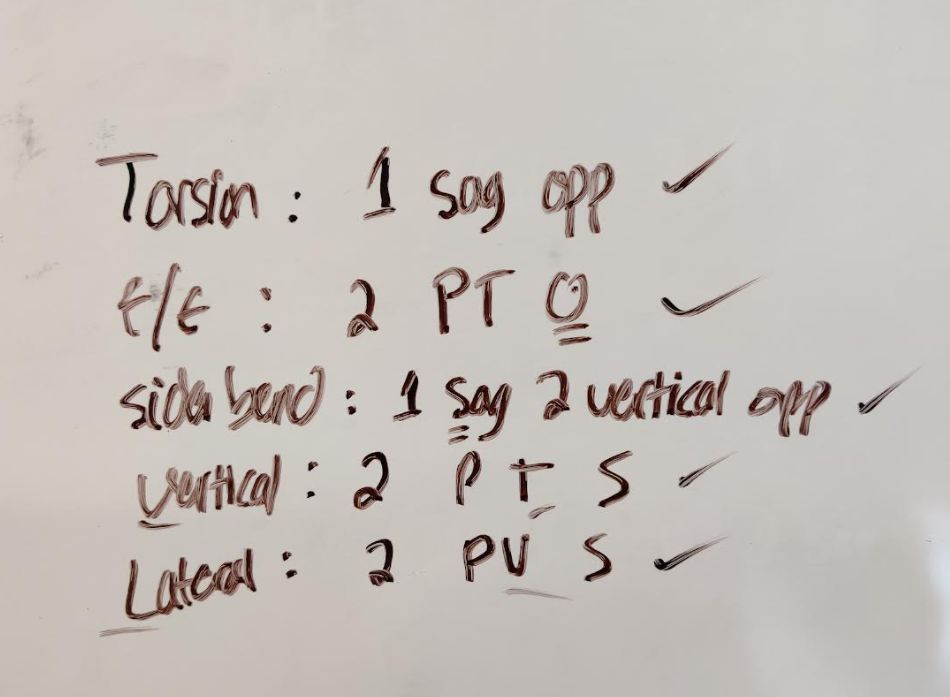 Torsion : 1 Sag opp ✓
F/E : 2 PT O ✓
side bend : 1 Sag 2 vertical opp ✓
vertical : 2 P T S ✓
Lateral : 2 PV S ✓